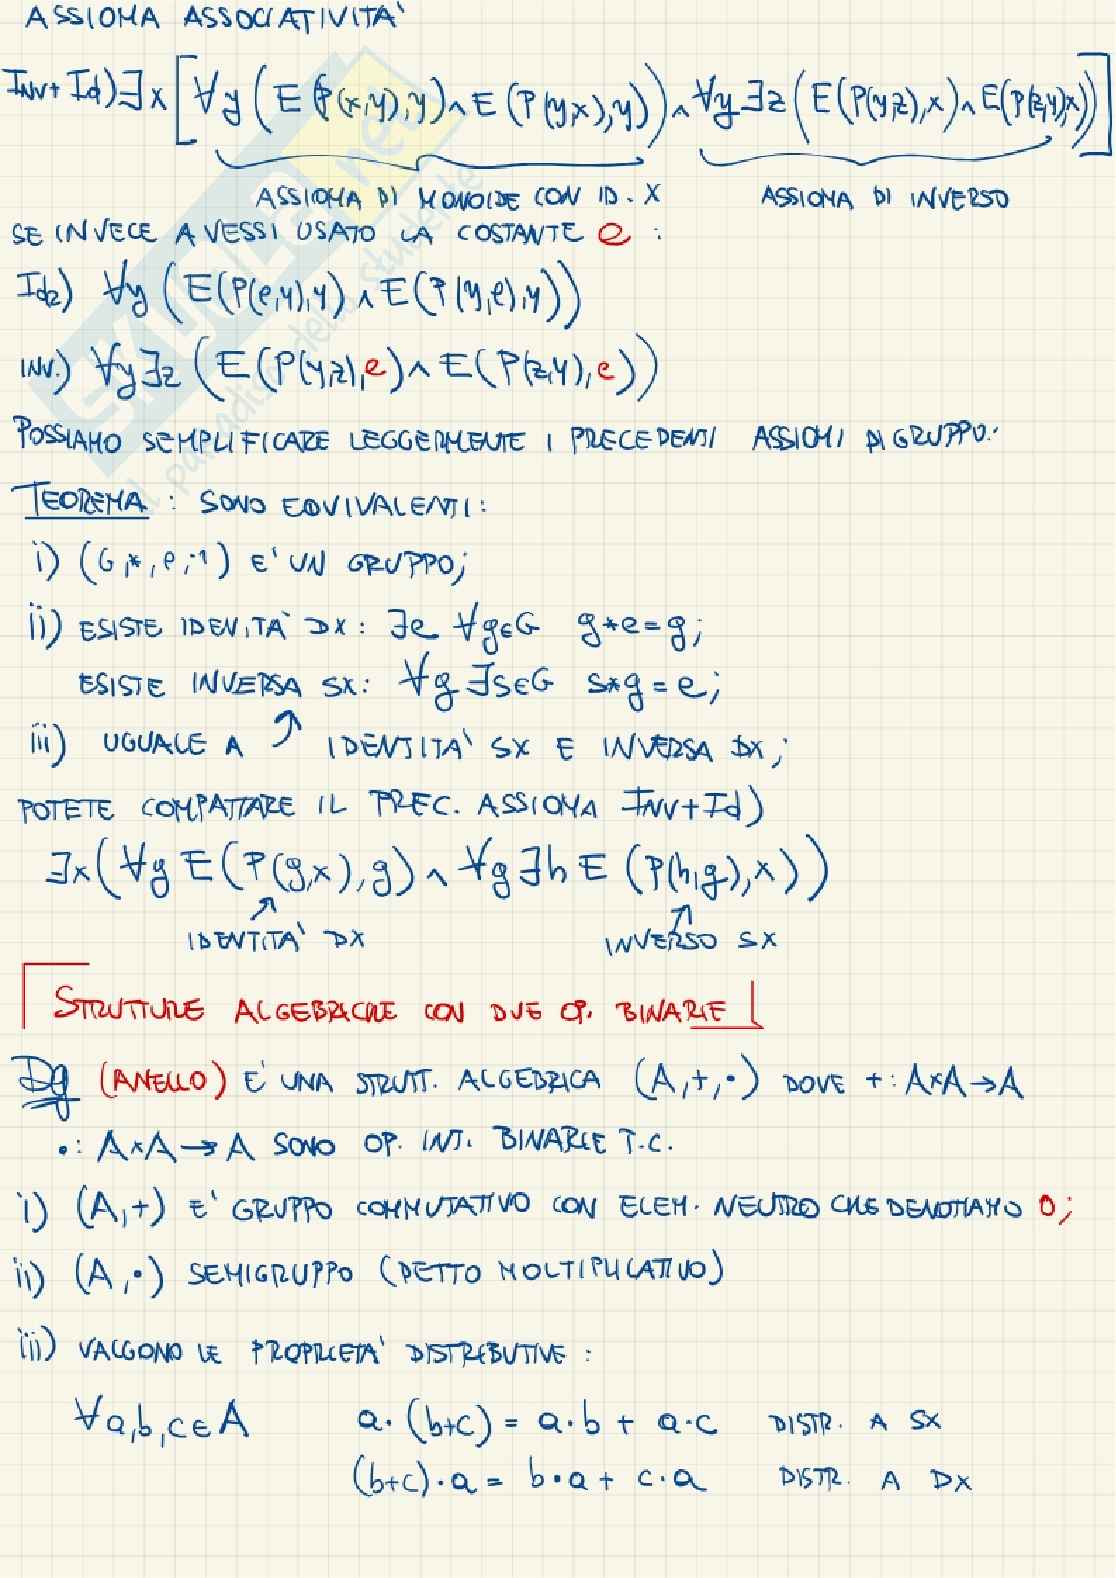 ASSIOMA ASSOCIATIVITA'
INV+Id) ∃x [∀y (E(P(x,y),y) ∧ E(P(y,x),y)) ∧ ∀y ∃z (E(P(y,z),x) ∧ E(P(z,y),x))]
ASSIOMA DI MONOIDE CON ID. X ASSIOMA DI INVERSO
SE INVECE AVESSI USATO LA COSTANTE e :
Id2) ∀y (E(P(e,y),y) ∧ E(P(y,e),y))
INV.) ∀y ∃z (E(P(y,z),e) ∧ E(P(z,y),e))
POSSIAMO SEMPLIFICARE LEGGERMENTE I PRECEDENTI ASSIOMI DI GRUPPO:
TEOREMA : SONO EQUIVALENTI:
i) (G,*,e,-1) E' UN GRUPPO;
ii) ESISTE IDENTITA' DX: ∃e ∀g∈G g*e=g;
ESISTE INVERSA SX: ∀g ∃s∈G s*g=e;
iii) UGUALE A ↗ IDENTITA' SX E INVERSA DX;
POTETE COMPATTARE IL PREC. ASSIOMA INV+Id)
∃x(∀g E(P(g,x),g) ∧ ∀g ∃h E (P(h,g),x))
IDENTITA' DX INVERSO SX
STRUTTURE ALGEBRICHE CON DUE OP. BINARIE
Def (ANELLO) E' UNA STRUTT. ALGEBRICA (A,+,•) DOVE +: A×A→A
•: A×A→A SONO OP. INT. BINARIE T.C.
i) (A,+) E' GRUPPO COMMUTATIVO CON ELEM. NEUTRO CHE DENOTIAMO 0;
ii) (A,•) SEMIGRUPPO (DETTO MOLTIPLICATIVO)
iii) VALGONO LE PROPRIETA' DISTRIBUTIVE :
∀a,b,c∈A a·(b+c) = a·b + a·c DISTR. A SX
(b+c)·a = b·a + c·a DISTR. A DX